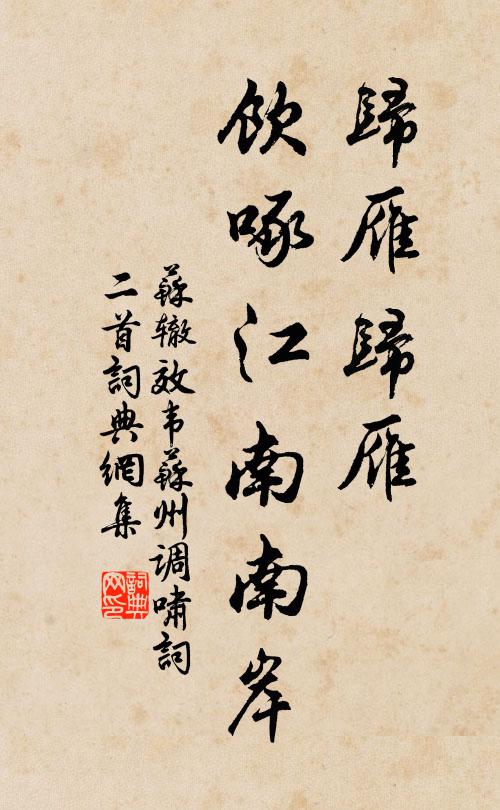 歸雁歸雁
飲啄江南南岸
蘇辙效韦蘇州调嘯詞
二首詞典網集
詞典网印